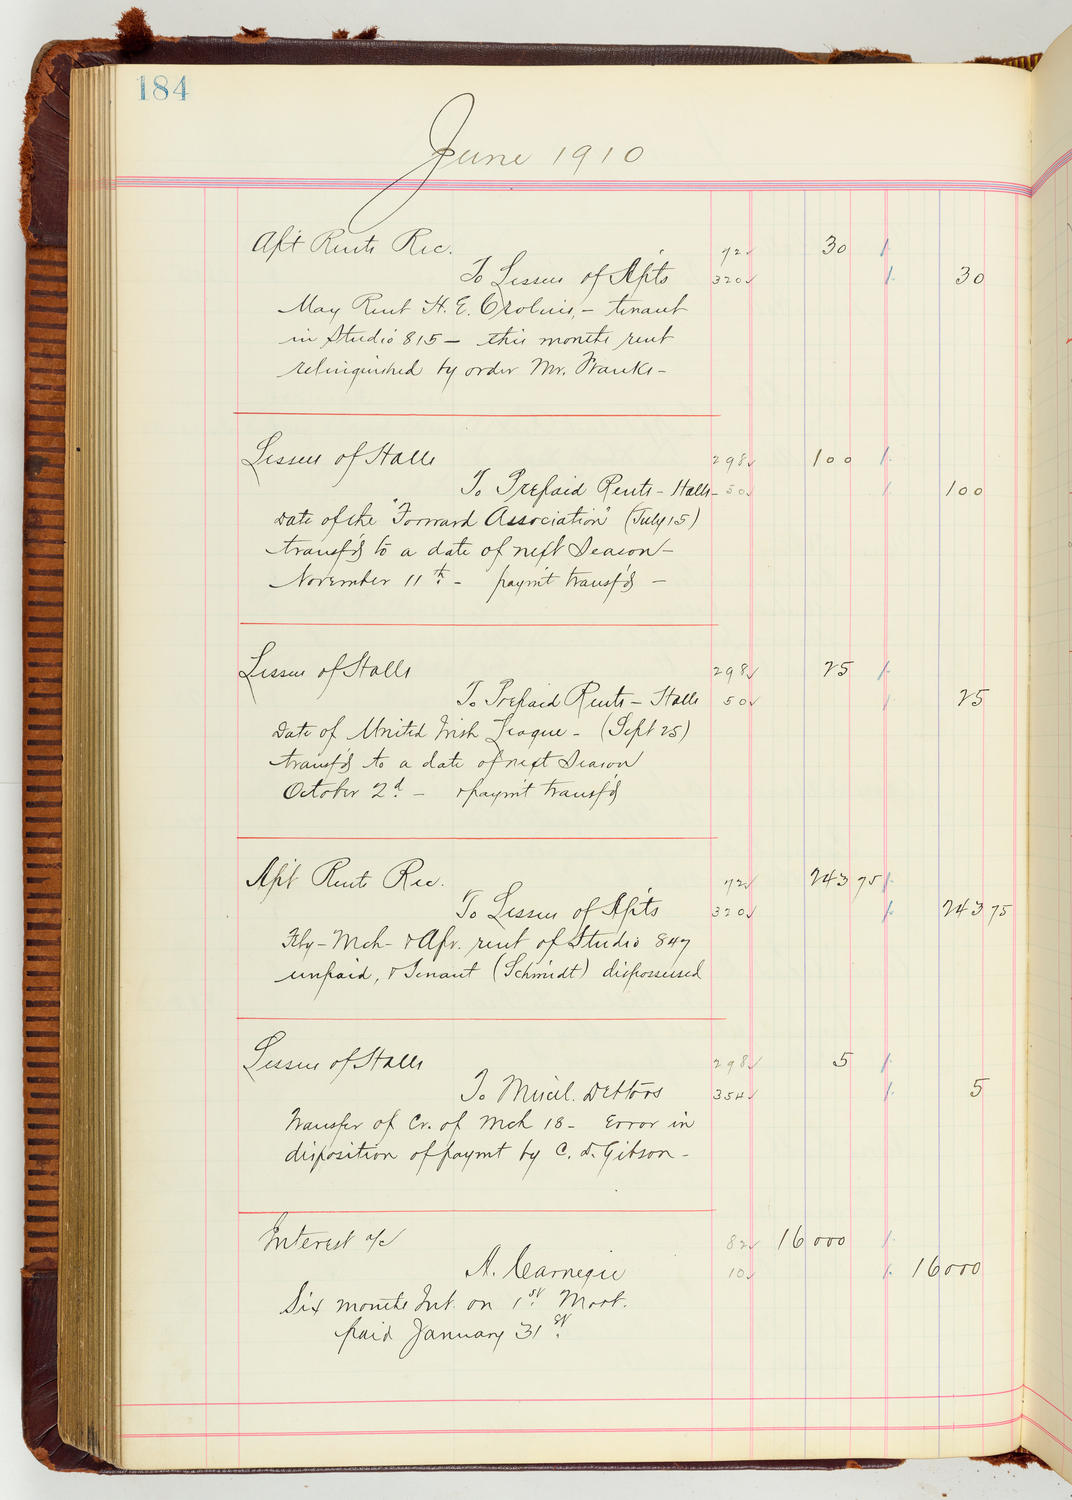 184
June 1910
Apt Rents Rec. 72✓ 30
To Lessees of Apts 320✓ 30
May Rent H. E. – tenant
in Studio 815 – this months rent
relinquished by order Mr. Franke –
Lessees of Halls 298✓ 100
To Prepaid Rents – Halls – 50✓ 100
Date of the "Forward Association" (July 15)
transf'd to a date of next Season –
November 11th – paym't transf'd –
Lessees of Halls 298✓ 25
To Prepaid Rents – Halls 50✓ 25
Date of United Irish League – (Sept 25)
transf'd to a date of next Season
October 2d – & paym't transf'd
Apt Rents Rec. 72✓ 243 75
To Lessees of Apts 320✓ 243 75
Feby – Mch – & Apr. rent of Studio 847
unpaid, & Tenant (Schmidt) dispossessed
Lessees of Halls 298✓ 5
To Miscel. Debtors 354✓ 5
Transfer of Cr. of Mch 18 – Error in
disposition of paymt by C. D. Gibson –
Interest a/c 82✓ 16000
A. Carnegie 10✓ 16000
Six months Int. on 1st Mort.
paid January 31st